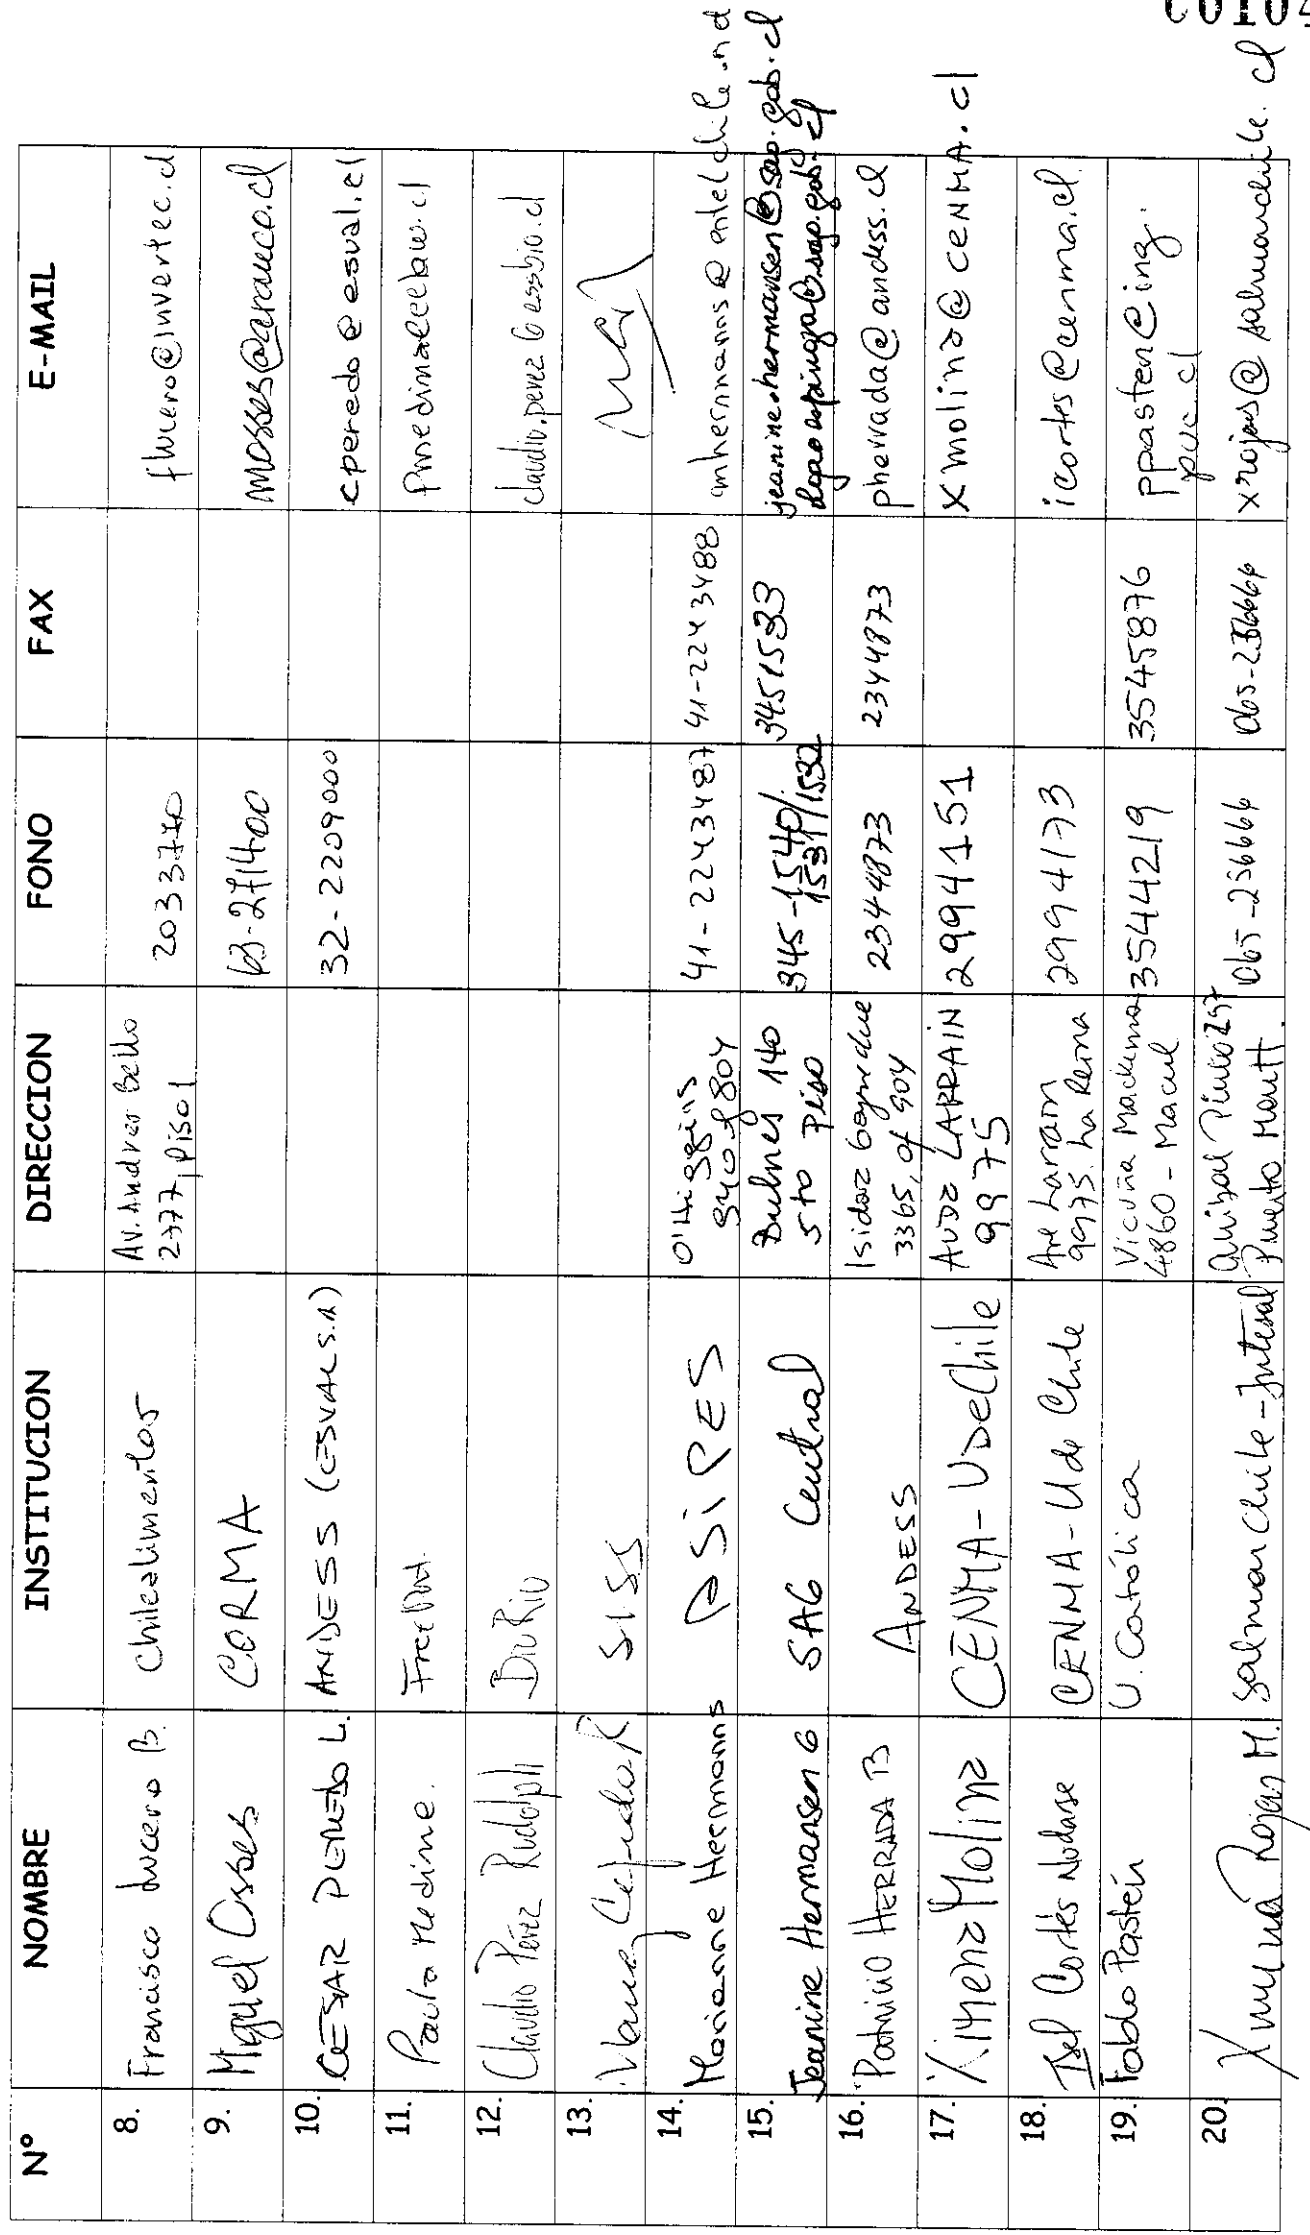 N° NOMBRE INSTITUCION DIRECCION FONO FAX E-MAIL
8. Francisco Lucero B. Chilealimentos Av. Andres Bello 2777, piso 1 2033770 flucero@invertec.cl
9. Miguel Osses CORMA 63-271400 mosses@arauco.cl
10. CESAR PEREDO L. ANDESS (ESVAL S.A) 32-2209000 cperedo@esval.cl
11. Paula Medina.
12. Claudio Pérez Rudolph claudio.perez@essbio.cl
13. SISS
14. Marianne Hermanns ASIPES O'Higgins 940 of 804 41-2243487 41-2243488 mhermanns@entelchile.net
15. Jeanine Hermansen G SAG Central Bulnes 140 5to piso 345-1540/ 1531/1532 3451533 jeanine.hermansen@sag.gob.cl
16. Patricio HERRADA B ANDESS Isidora Goyenechea 3365, of 904 2344873 2344873 pherrada@andess.cl
17. Ximena Molina CENMA-UDeChile AVDA LARRAIN 9975 2994151 xmolina@CENMA.cl
18. Isel Cortés Nodarse CENMA-U de Chile Ave Larrain 9975. La Reina 2994173 icortes@cenma.cl
19. Pablo Pastén U. Católica Vicuña Mackenna 4860 - Macul 3544219 3545876 ppasten@ing.puc.cl
20. Ximena Rojas M. SalmonChile - Intesal Anibal Pinto 297 Puerto Montt. 065-256666 065-256666 xrojas@salmonchile.cl